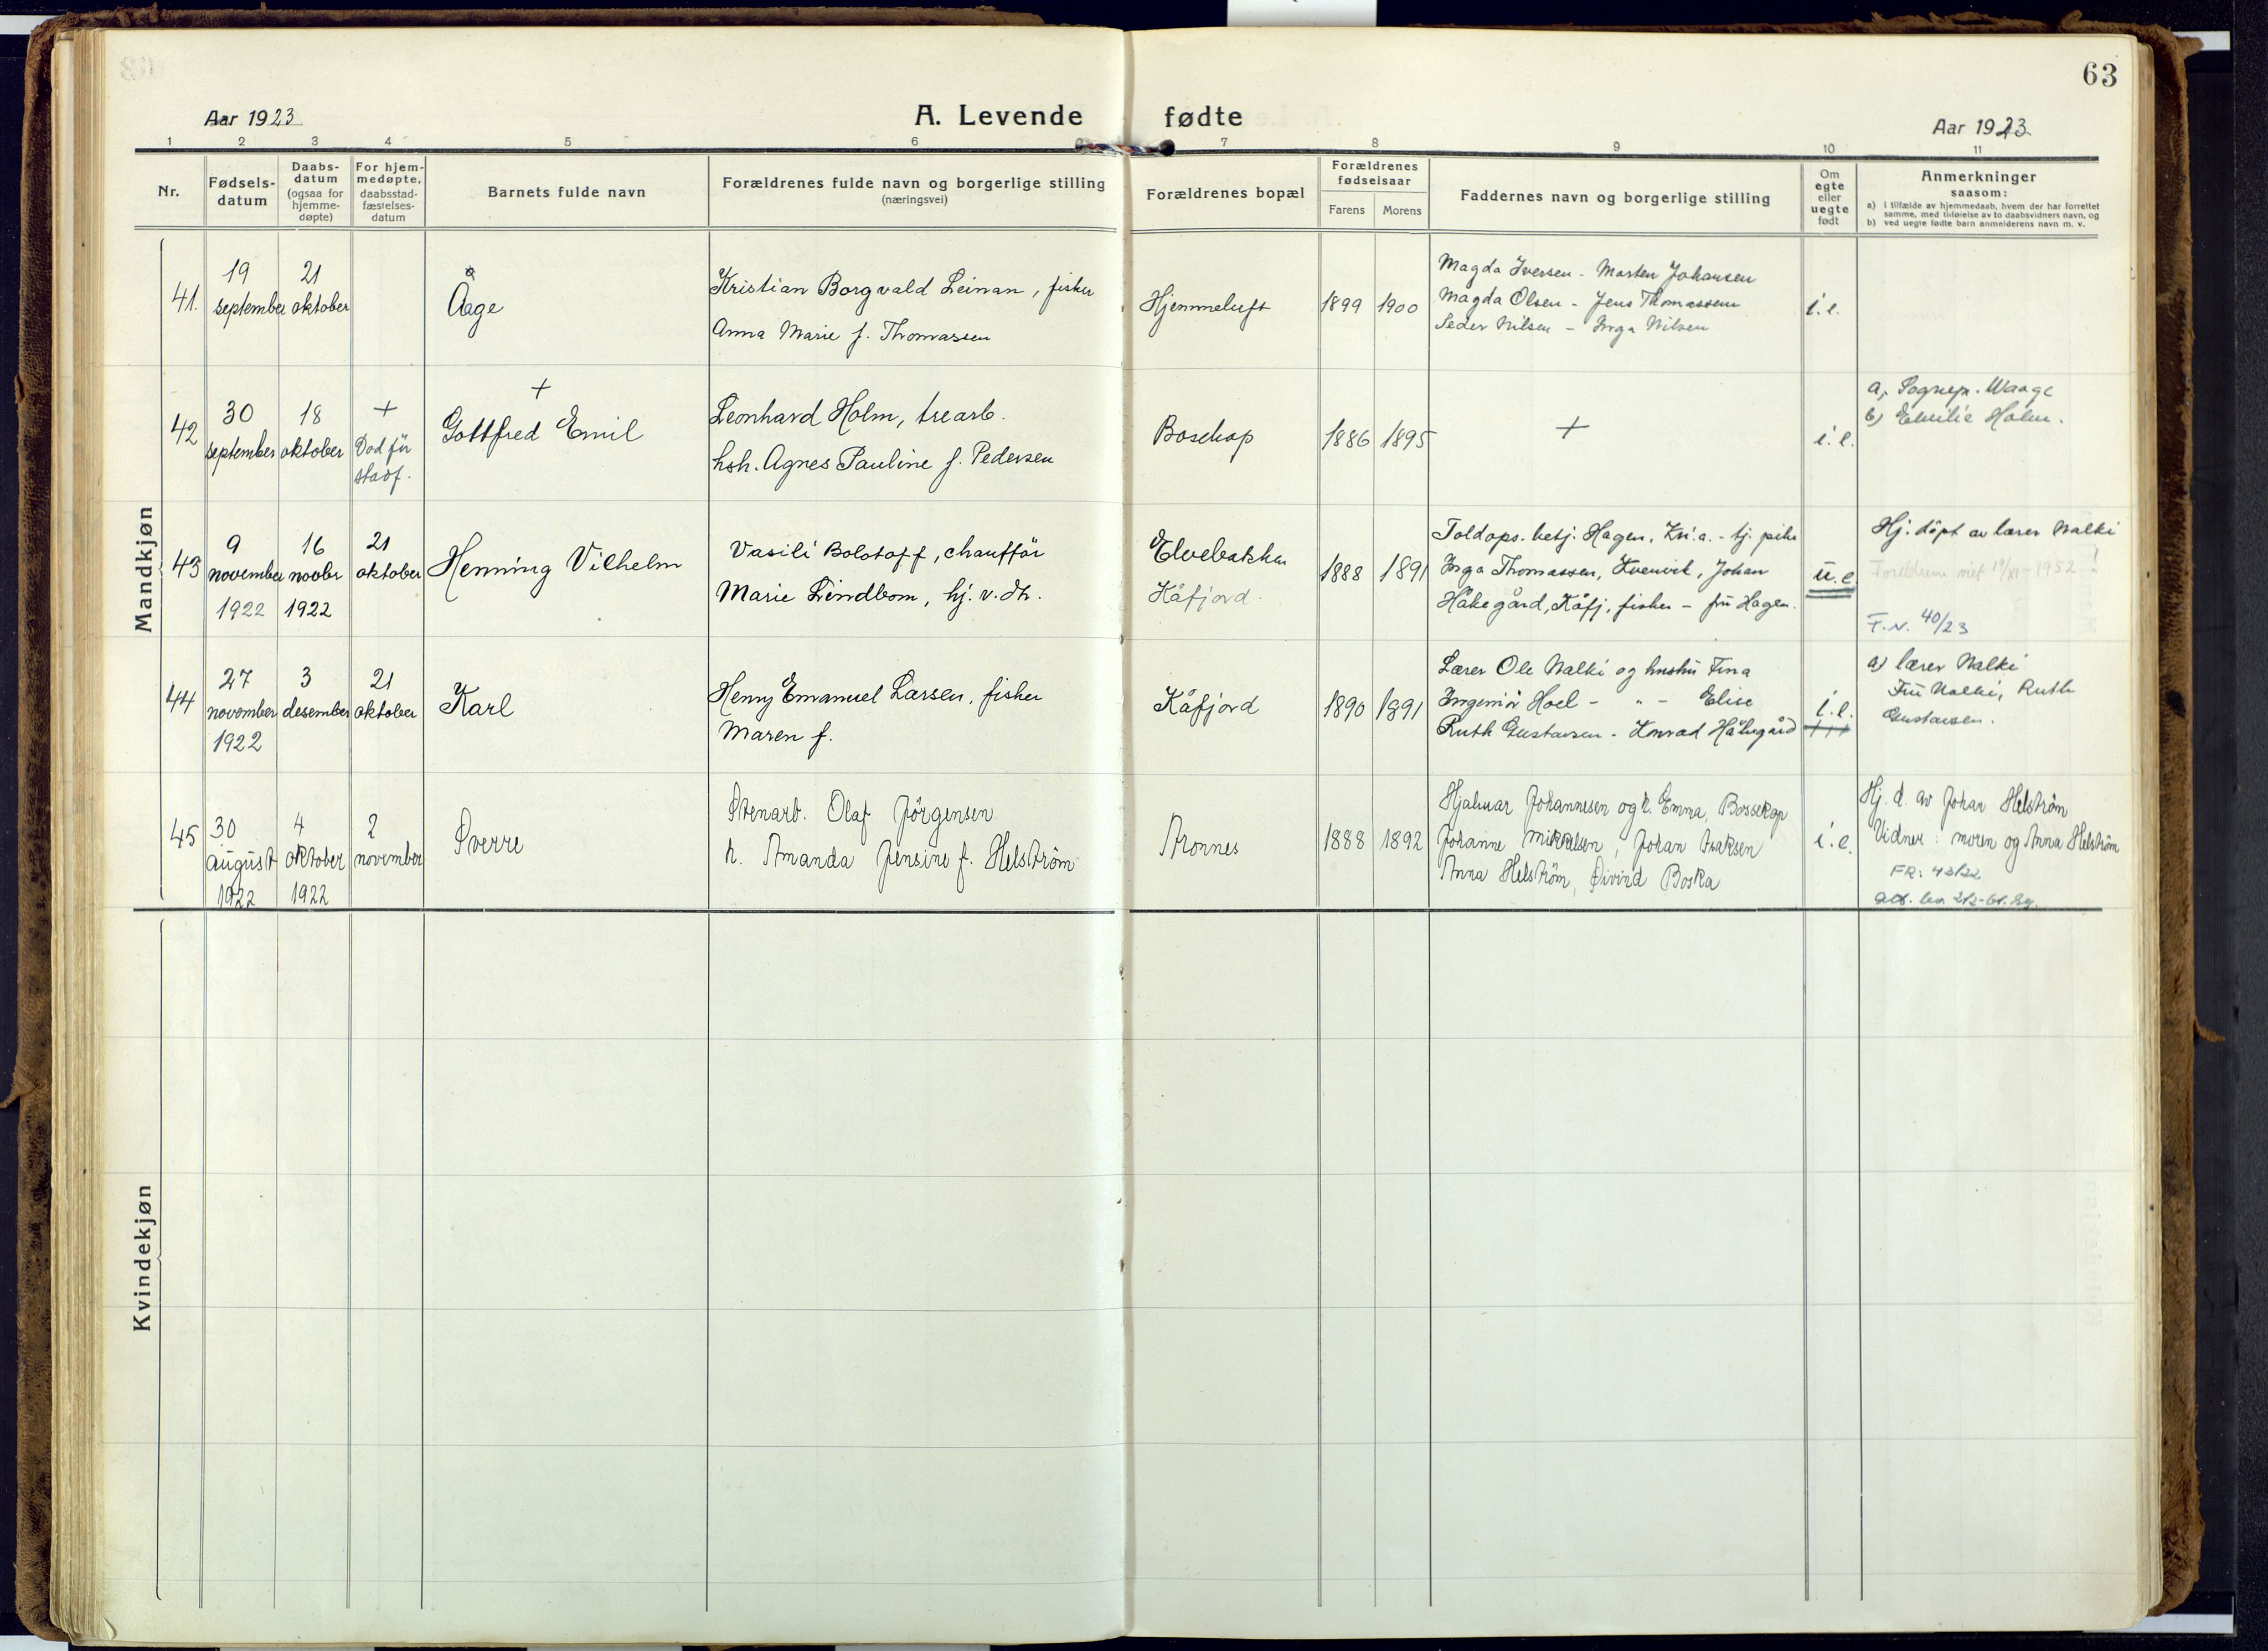 63
Aar 1923
A. Levende fødte
Aar 1923
1 2 3 4 5 6 7 8 9 10 11
Nr.
Fødsels-
datum
Daabs-
datum
(ogsaa for
hjemme-
døpte)
For hjem-
medøpte,
daabsstad-
fæstelses-
datum
Barnets fulde navn
Forældrenes fulde navn og borgerlige stilling
(næringsvei)
Forældrenes bopæl
Forældrenes
fødselsaar
Farens Morens
Faddernes navn og borgerlige stilling
Om
egte
eller
uegte
født
Anmerkninger
saasom:
a) i tilfælde av hjemmedaab, hvem der har forrettet
samme, med tilføielse av to daabsvidners navn, og
b) ved uegte fødte barn anmelderens navn m. v.
Mandkjøn
41.
19
september
21
oktober
Åage
Kristian Borgvald Leinan, fisker
Anna Marie f. Thomassen
Hjemmeluft
1899 1900
Magda Iversen - Morten Johansen
Magda Olsen - Jens Thomassen
Peder Nilsen - Inga Nilsen
i. e.
42
30
september
18
oktober
+
Död för
stadf.
+
Gottfred Emil
Leonhard Holm, trearb.
hsh. Agnes Pauline f. Pedersen
Bosekop
1886 1895
+
i. e.
a, Sognep. Waage
b) Emilie Holm.
43
9
november
1922
16
novbr
1922
21
oktober
Henning Vilhelm
Vasili Bolotoff, chaufför
Marie Lindbom, hj. v. dr.
Elvebakken
Kåfjord.
1888 1891
Toldops. betj. Hagen, Kri.a. - tj. pike
Inga Thomassen, Kvenvik, Johan
Håkegård, Kåfj, fisker - fru Hagen.
u. e.
Hj. döpt av lærer Nalki
Foreldrene viet 1952
F.N. 40/23
44
27
november
1922
3
desember
21
oktober
Karl
Henry Emanuel Larsen, fisker
Maren f.
Kåfjord
1890 1891
Lærer Ole Nalki og hustru Fina
Ingeniör Hoel - " - Elise
Ruth Gustavsen - Konrad Håkegård
i. e.
a) lærer Nalki
Fru Nalki, Ruth
Gustavsen.
45
30
august
1922
4
oktober
1922
2
november
Sverre
Stenarb. Olaf Jörgensen
h. Amanda Jensine f. Helström
Aronnes
1888 1892
Hjalmar Johannesen og h. Emma, Bossekop
Johanne Mikkelsen, Johan Isaksen
Anna Helström, Øivind Boska
i. e.
Hj. d. av Johan Helström
Vidner: moren og Anna Helström
FR: 43/22
Kvindekjøn